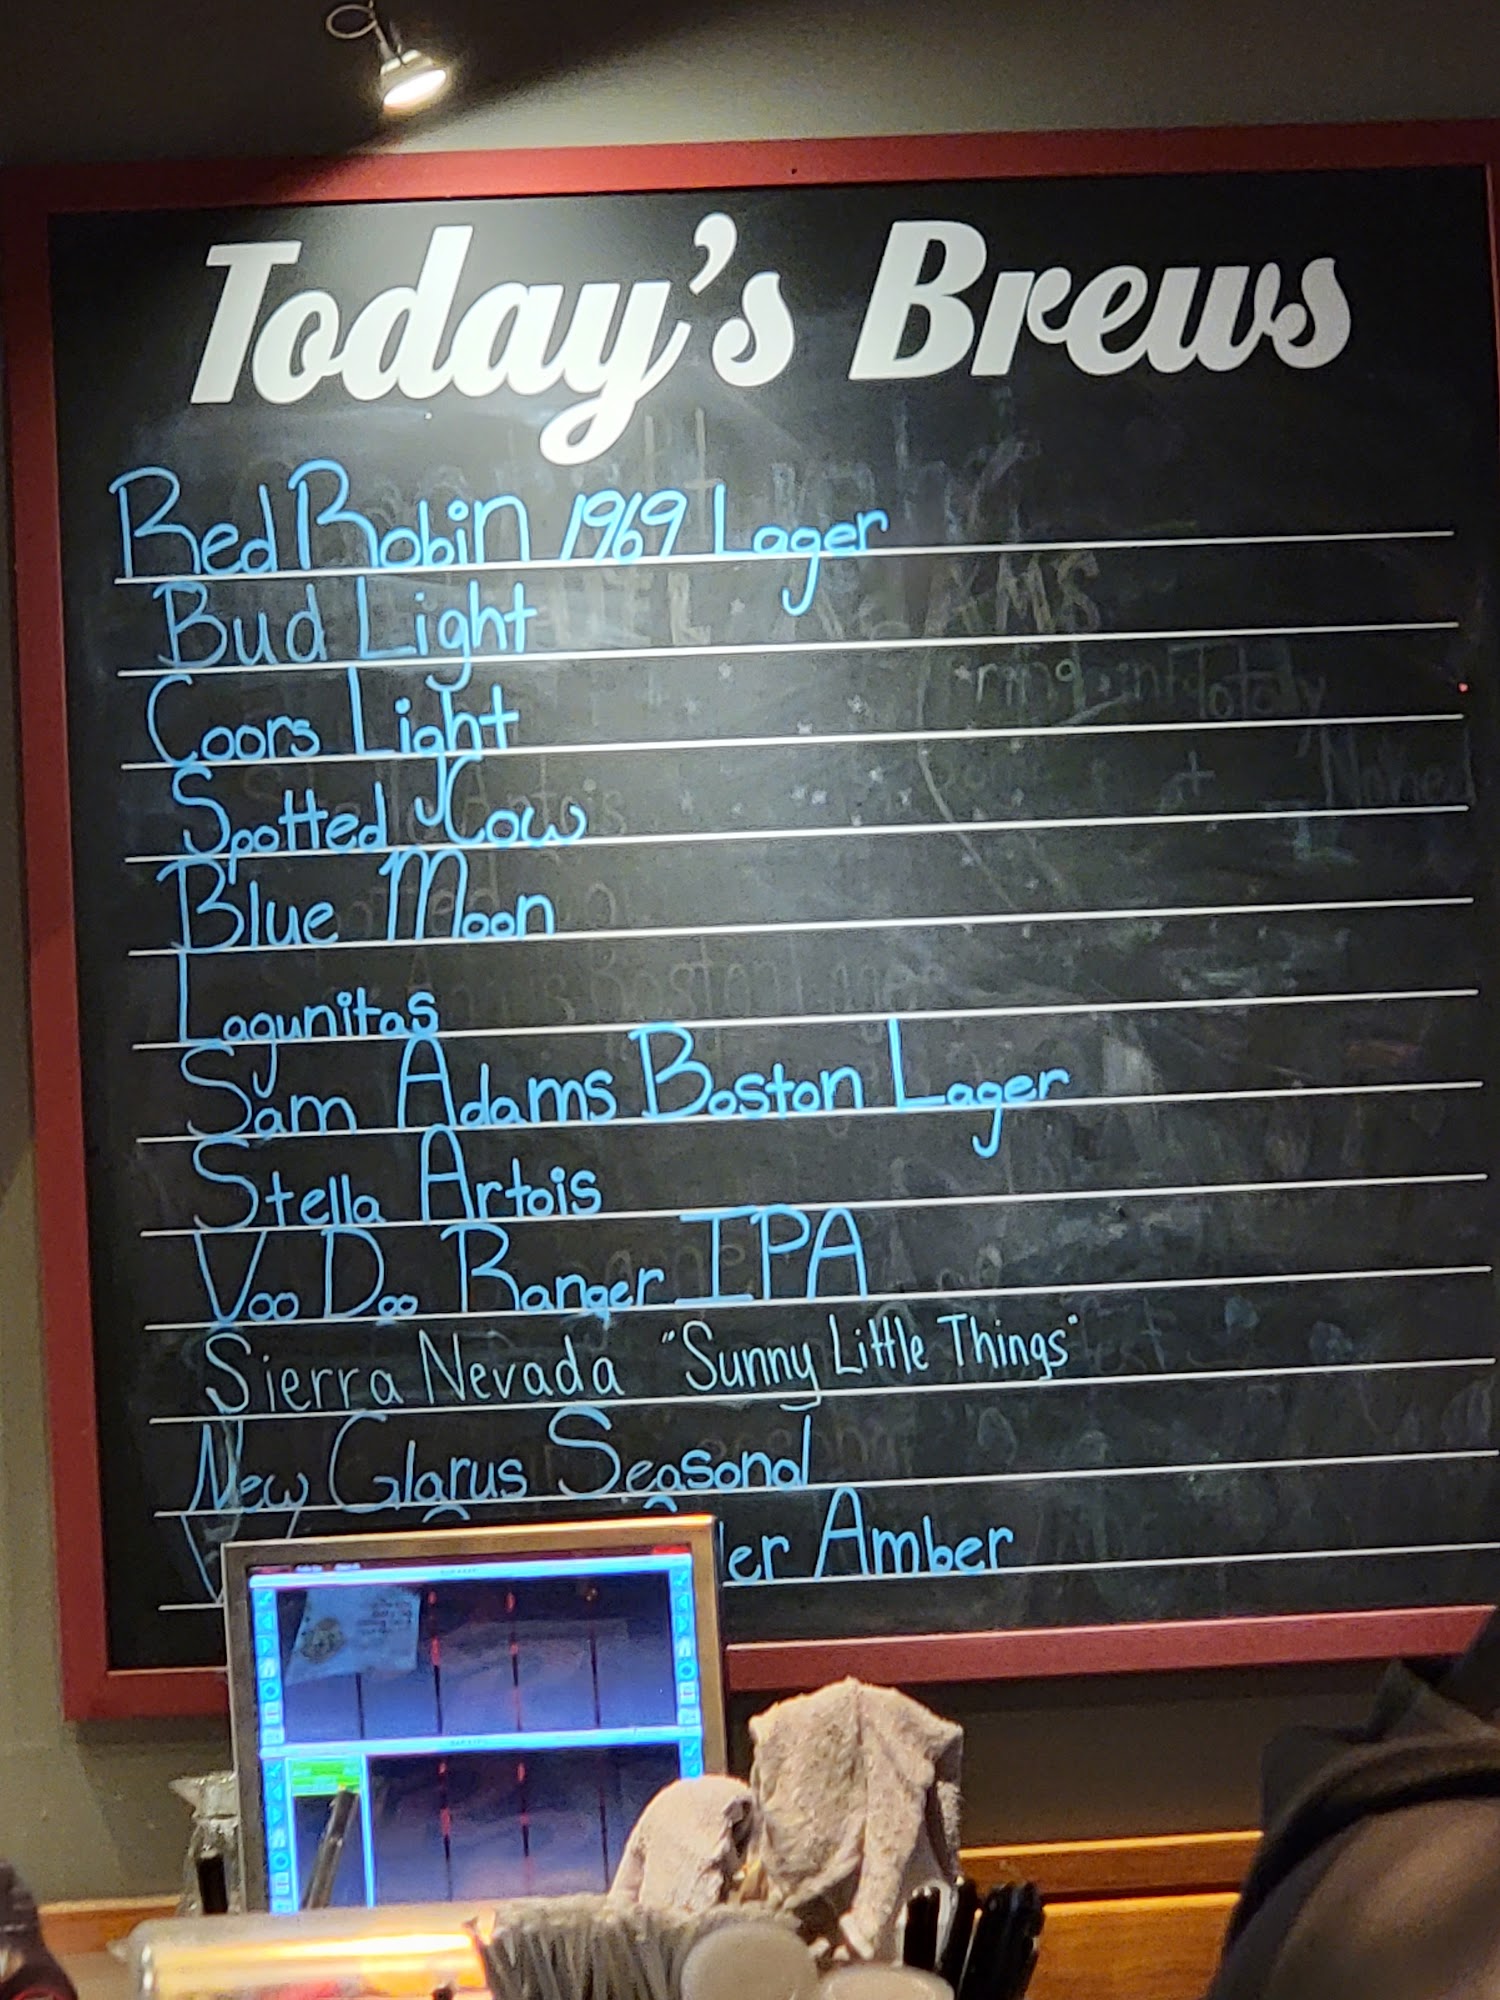 Today's Brews
Red Robin 1969 Lager
Bud Light
Coors Light
Spotted Cow
Blue Moon
Lagunitas
Sam Adams Boston Lager
Stella Artois
Voo Doo Ranger IPA
Sierra Nevada "Sunny Little Things"
New Glarus Seasonal
Amber